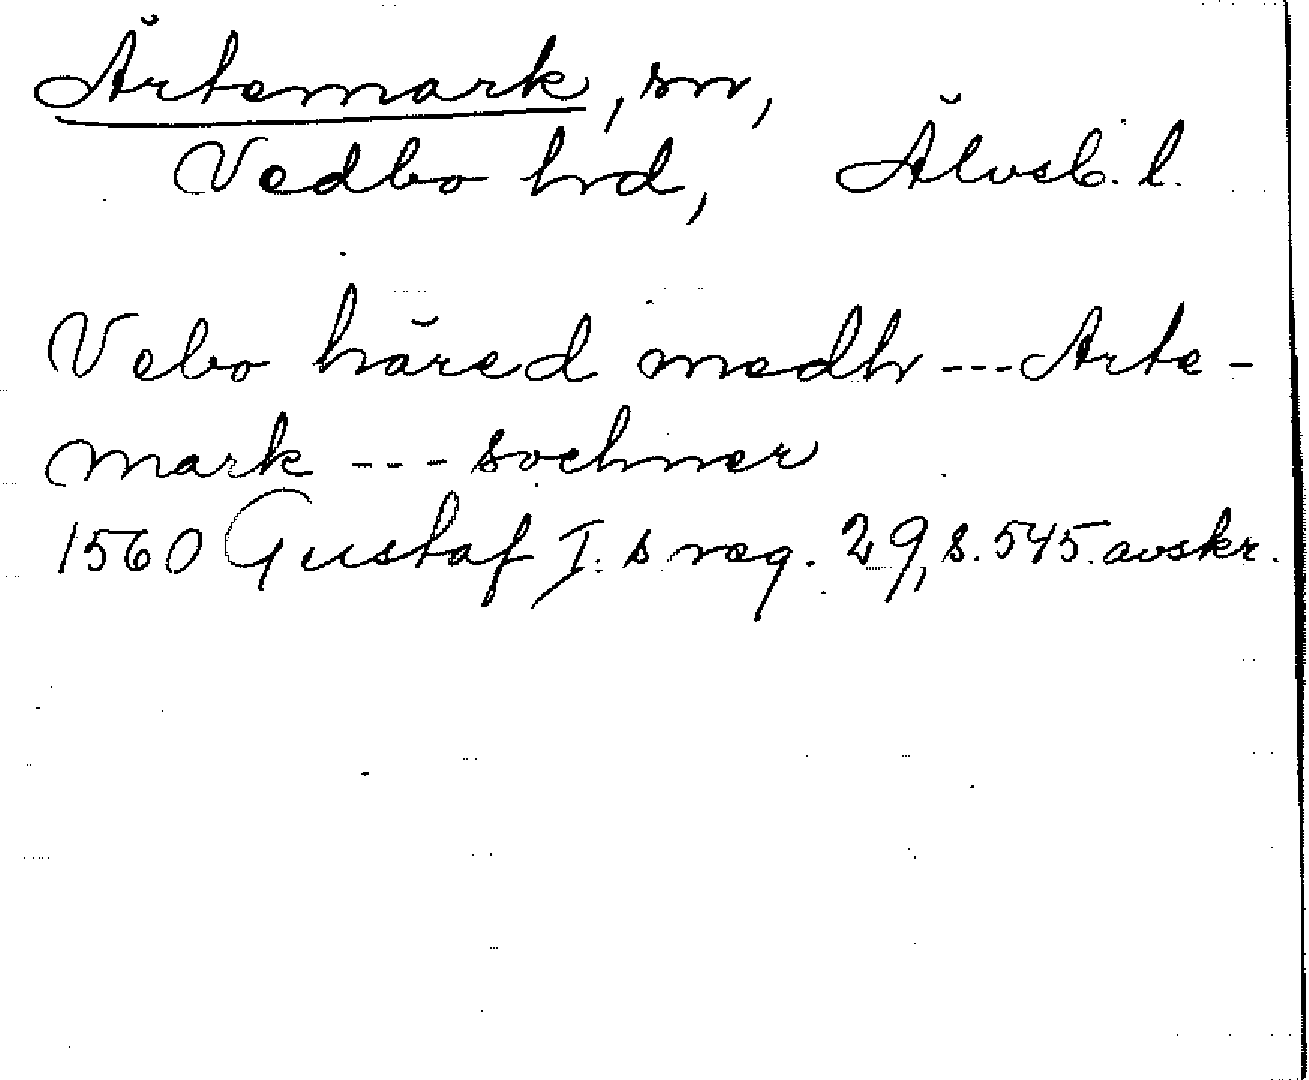 Ärtemark, sn,
Vedbo hrd, Älvsb. l.
Vebo häred medh --- Arte-
mark --- sochner
1560 Gustaf I.s reg. 29, s. 545. avskr.